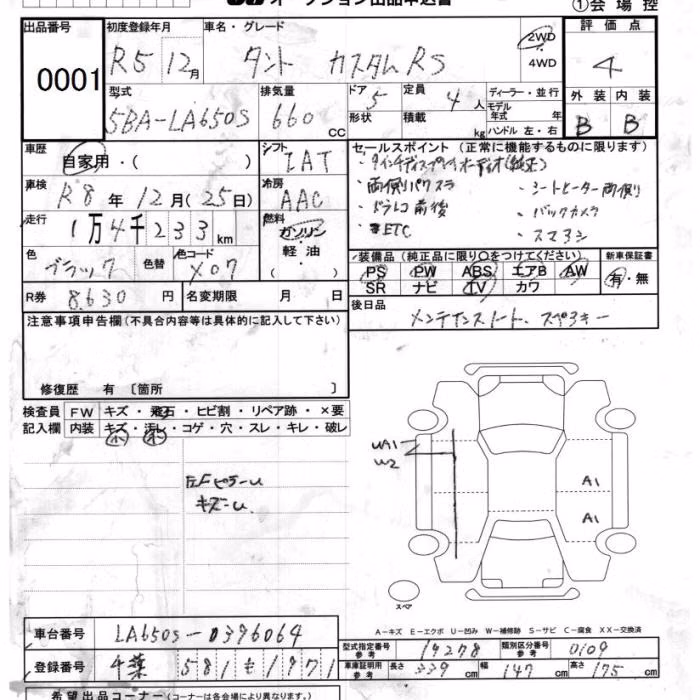 ①会場控
出品番号
0001
初度登録年月
R5 12月
車名・グレード
タント カスタムRS
2WD
4WD
評価点
4
型式
5BA-LA650S
排気量
660 cc
ドア 5
形状
定員 4 人
積載 kg
ディーラー・並行
モデル年式 年
ハンドル 左・右
外装 内装
B B
車歴
自家用・( )
シフト
IAT
車検
R8年12月(25日)
冷房
AAC
走行
1万4千233km
燃料
ガソリン
軽油
( )
色
ブラック
色替
色コード
X07
R券 8.630 円
名変期限 月 日
セールスポイント (正常に機能するものに限ります)
・9インチディスプレイオーディオ(純正)
・両側パワスラ ・シートヒーター両側
・ドラレコ前後 ・バックカメラ
・ETC ・スマアシ
装備品 (純正品に限り○をつけてください)
PS PW ABS エアB AW
SR ナビ TV カワ
新車保証書
有・無
後日品
メンテナンスノート、スペアキー
注意事項申告欄(不具合内容等は具体的に記入して下さい)
修復歴 有 〔箇所 〕
検査員記入欄
FW キズ・飛石・ヒビ割・リペア跡・×要
内装 キズ・汚レ・コゲ・穴・スレ・キレ・破レ
小 小
左Fピラーu
キズ-u
UA1
W2
A1
A1
スペア
A-キズ E-エクボ U-凹み W-補修跡 S-サビ C-腐食 XX-交換済
車台番号 LA650S-0396064
登録番号 千葉 581 も 1971
型式指定番号 参考 19278
類別区分番号 参考 0109
車庫証明用 参考 長さ 339 cm 幅 147 cm 高さ 175 cm
希望出品コーナー (コーナーは各会場により異なります。)